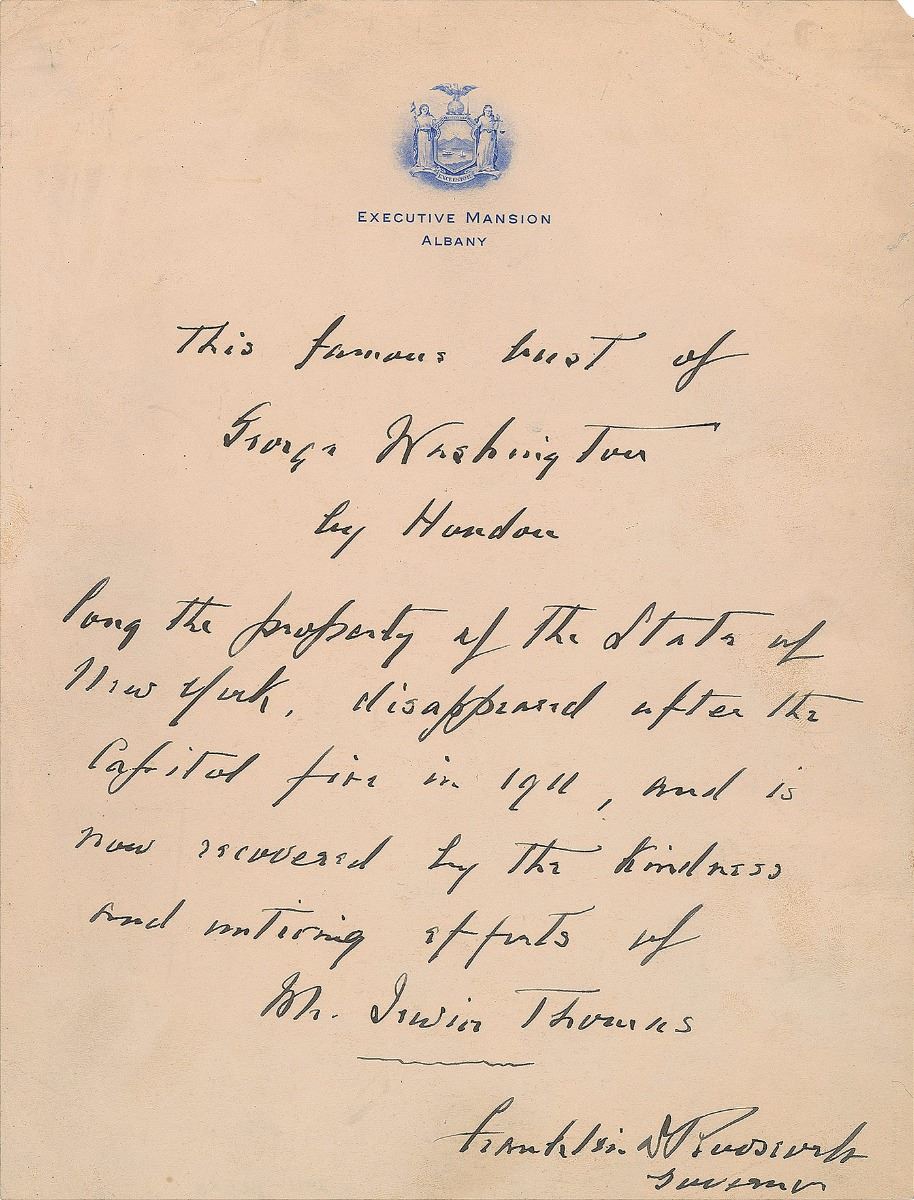 EXCELSIOR
EXECUTIVE MANSION
ALBANY
This famous bust of
George Washington
by Houdon
long the property of the State of
New York, disappeared after the
Capitol fire in 1911, and is
now recovered by the kindness
and untiring efforts of
Mr. Irwin Thomas
Franklin D Roosevelt
Governor